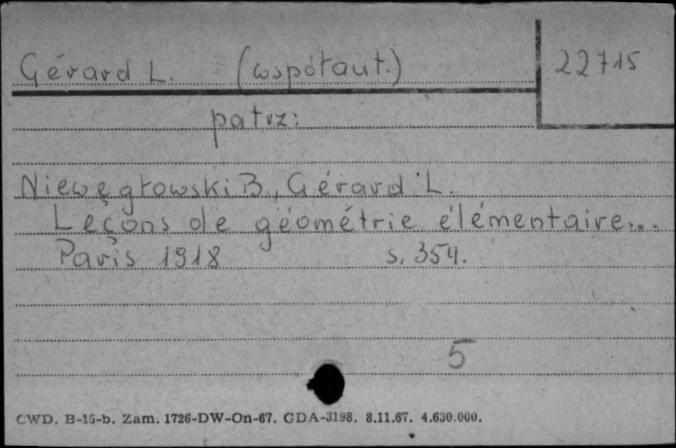 Gérard L. (współaut.) 22715
patrz:
Niewęgłowski B., Gérard L.
Leçons de géométrie élémentaire...
Paris 1918 s. 354.
5
CWD. B-15-b. Zam. 1726-DW-On-67. CDA-3198. 8.11.67. 4.630.000.